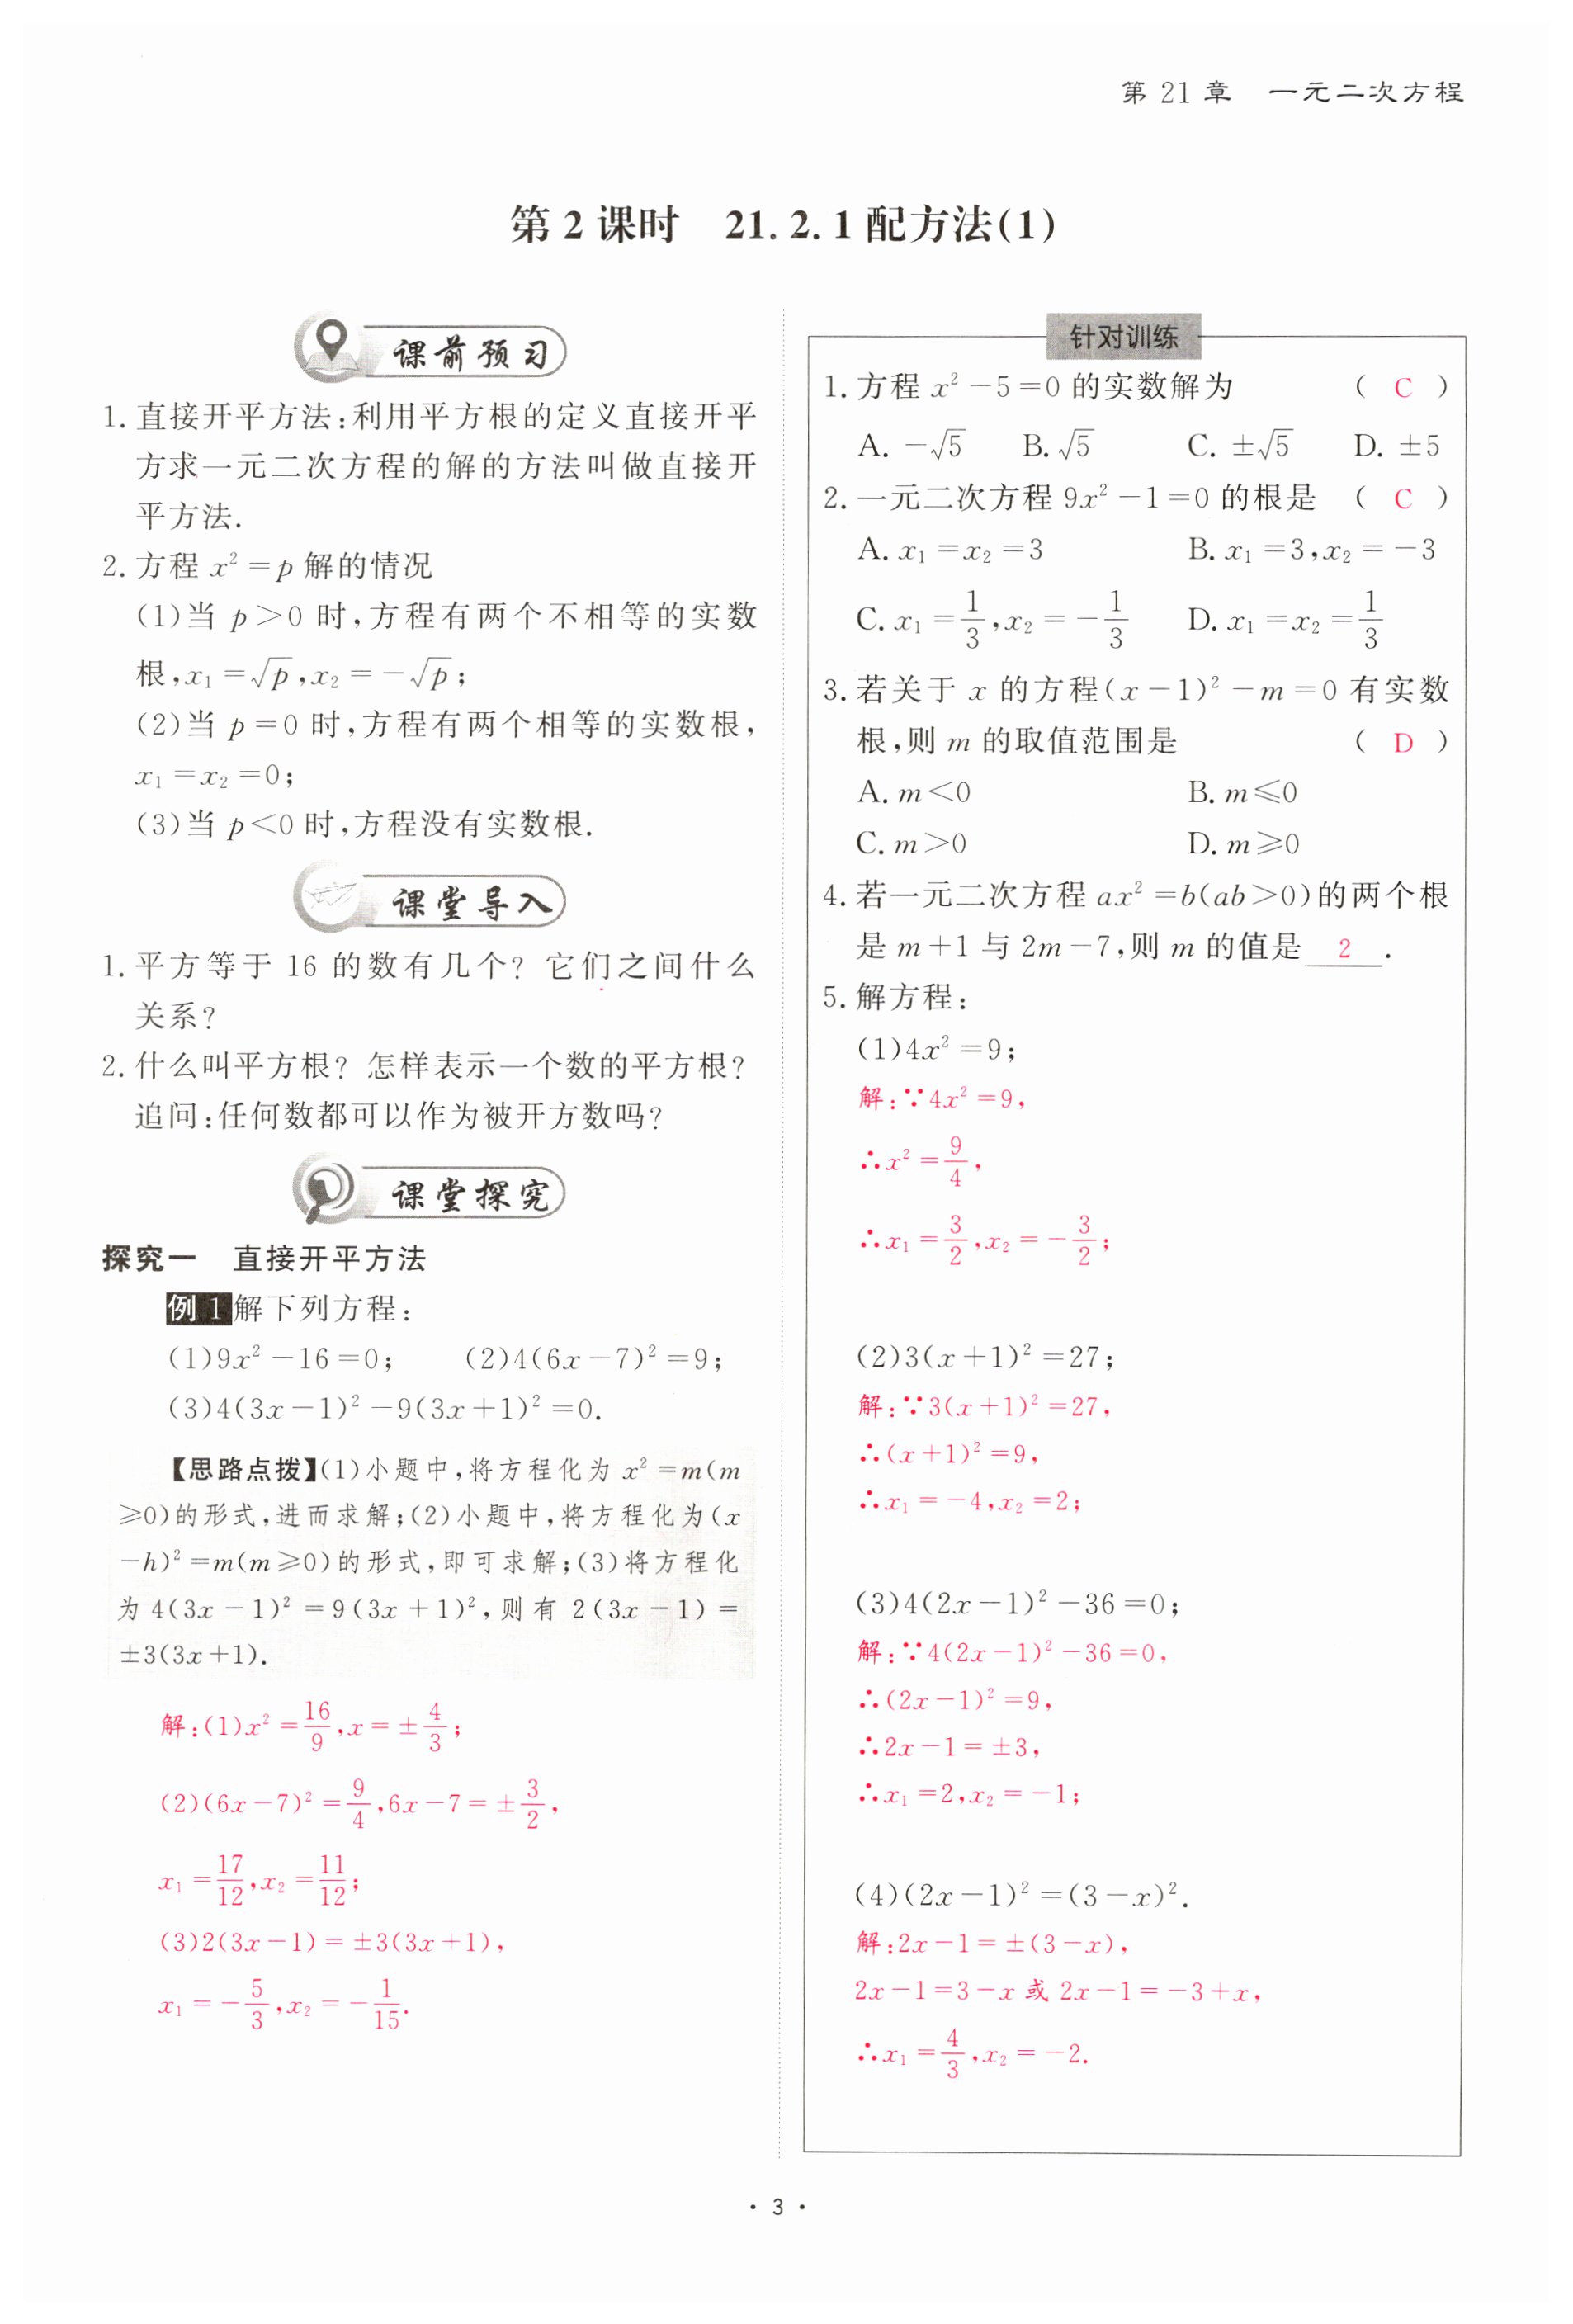 第 21 章　一元二次方程
第 2 课时　21.2.1 配方法(1)
课前预习
1. 直接开平方法:利用平方根的定义直接开平
方求一元二次方程的解的方法叫做直接开
平方法.
2. 方程 x²=p 解的情况
(1)当 p>0 时,方程有两个不相等的实数
根,x₁=√p,x₂=-√p;
(2)当 p=0 时,方程有两个相等的实数根,
x₁=x₂=0;
(3)当 p<0 时,方程没有实数根.
课堂导入
1. 平方等于 16 的数有几个? 它们之间什么
关系?
2. 什么叫平方根? 怎样表示一个数的平方根?
追问:任何数都可以作为被开方数吗?
课堂探究
探究一　直接开平方法
例 1 解下列方程:
(1)9x²-16=0;　(2)4(6x-7)²=9;
(3)4(3x-1)²-9(3x+1)²=0.
【思路点拨】(1)小题中,将方程化为 x²=m(m
≥0)的形式,进而求解;(2)小题中,将方程化为(x
-h)²=m(m≥0)的形式,即可求解;(3)将方程化
为 4(3x-1)²=9(3x+1)²,则有 2(3x-1)=
±3(3x+1).
解:(1)x²=16/9,x=±4/3;
(2)(6x-7)²=9/4,6x-7=±3/2,
x₁=17/12,x₂=11/12;
(3)2(3x-1)=±3(3x+1),
x₁=-5/3,x₂=-1/15.
针对训练
1. 方程 x²-5=0 的实数解为　( C )
A. -√5　B. √5　C. ±√5　D. ±5
2. 一元二次方程 9x²-1=0 的根是　( C )
A. x₁=x₂=3　B. x₁=3,x₂=-3
C. x₁=1/3,x₂=-1/3　D. x₁=x₂=1/3
3. 若关于 x 的方程(x-1)²-m=0 有实数
根,则 m 的取值范围是　( D )
A. m<0　B. m≤0
C. m>0　D. m≥0
4. 若一元二次方程 ax²=b(ab>0)的两个根
是 m+1 与 2m-7,则 m 的值是 2 .
5. 解方程:
(1)4x²=9;
解:∵4x²=9,
∴x²=9/4,
∴x₁=3/2,x₂=-3/2;
(2)3(x+1)²=27;
解:∵3(x+1)²=27,
∴(x+1)²=9,
∴x₁=-4,x₂=2;
(3)4(2x-1)²-36=0;
解:∵4(2x-1)²-36=0,
∴(2x-1)²=9,
∴2x-1=±3,
∴x₁=2,x₂=-1;
(4)(2x-1)²=(3-x)².
解:2x-1=±(3-x),
2x-1=3-x 或 2x-1=-3+x,
∴x₁=4/3,x₂=-2.
· 3 ·